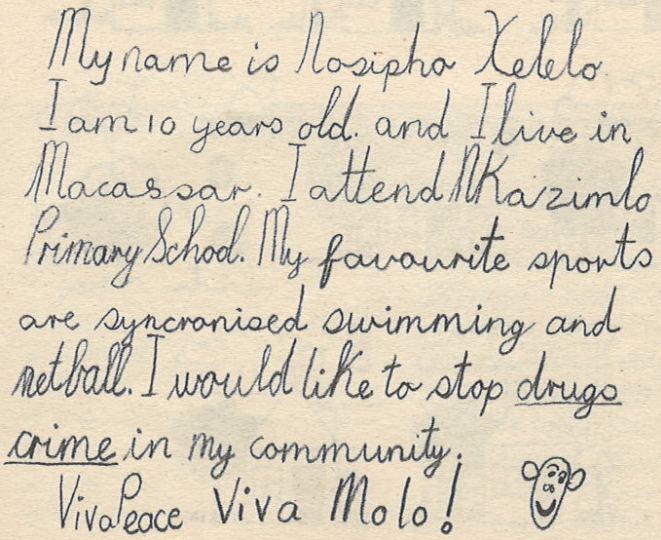 My name is Nosipho Xelelo
I am 10 years old. and I live in
Macassar. I attend NKazimlo
Primary School. My favourite sports
are syncronised swimming and
netball. I would like to stop drugs
crime in my community.
Viva Peace Viva Molo!